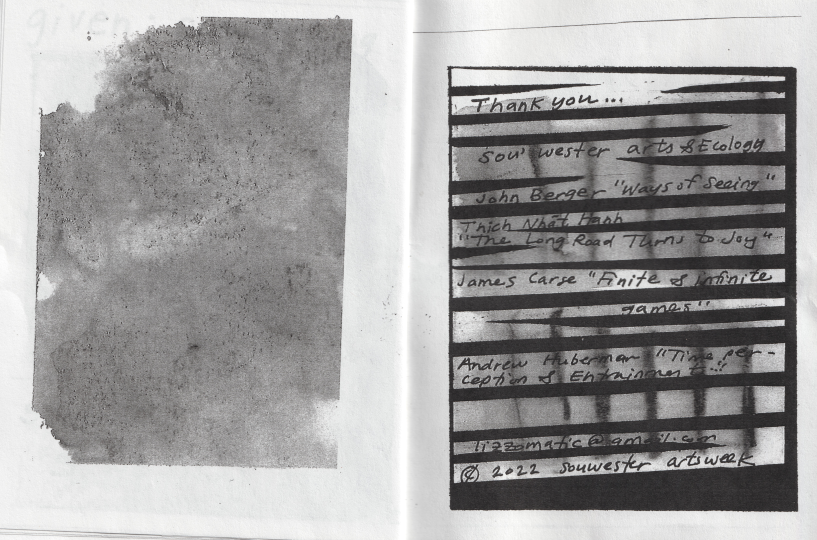 given
Thank you...
Sou'wester arts & Ecology
John Berger "Ways of Seeing"
Thich Nhất Hanh
"The Long Road Turns to Joy"
James Carse "Finite & Infinite
games"
Andrew Huberman "Time per-
ception & Entrainment"
lizzomatic@gmail.com
© 2022 souwester artsweek